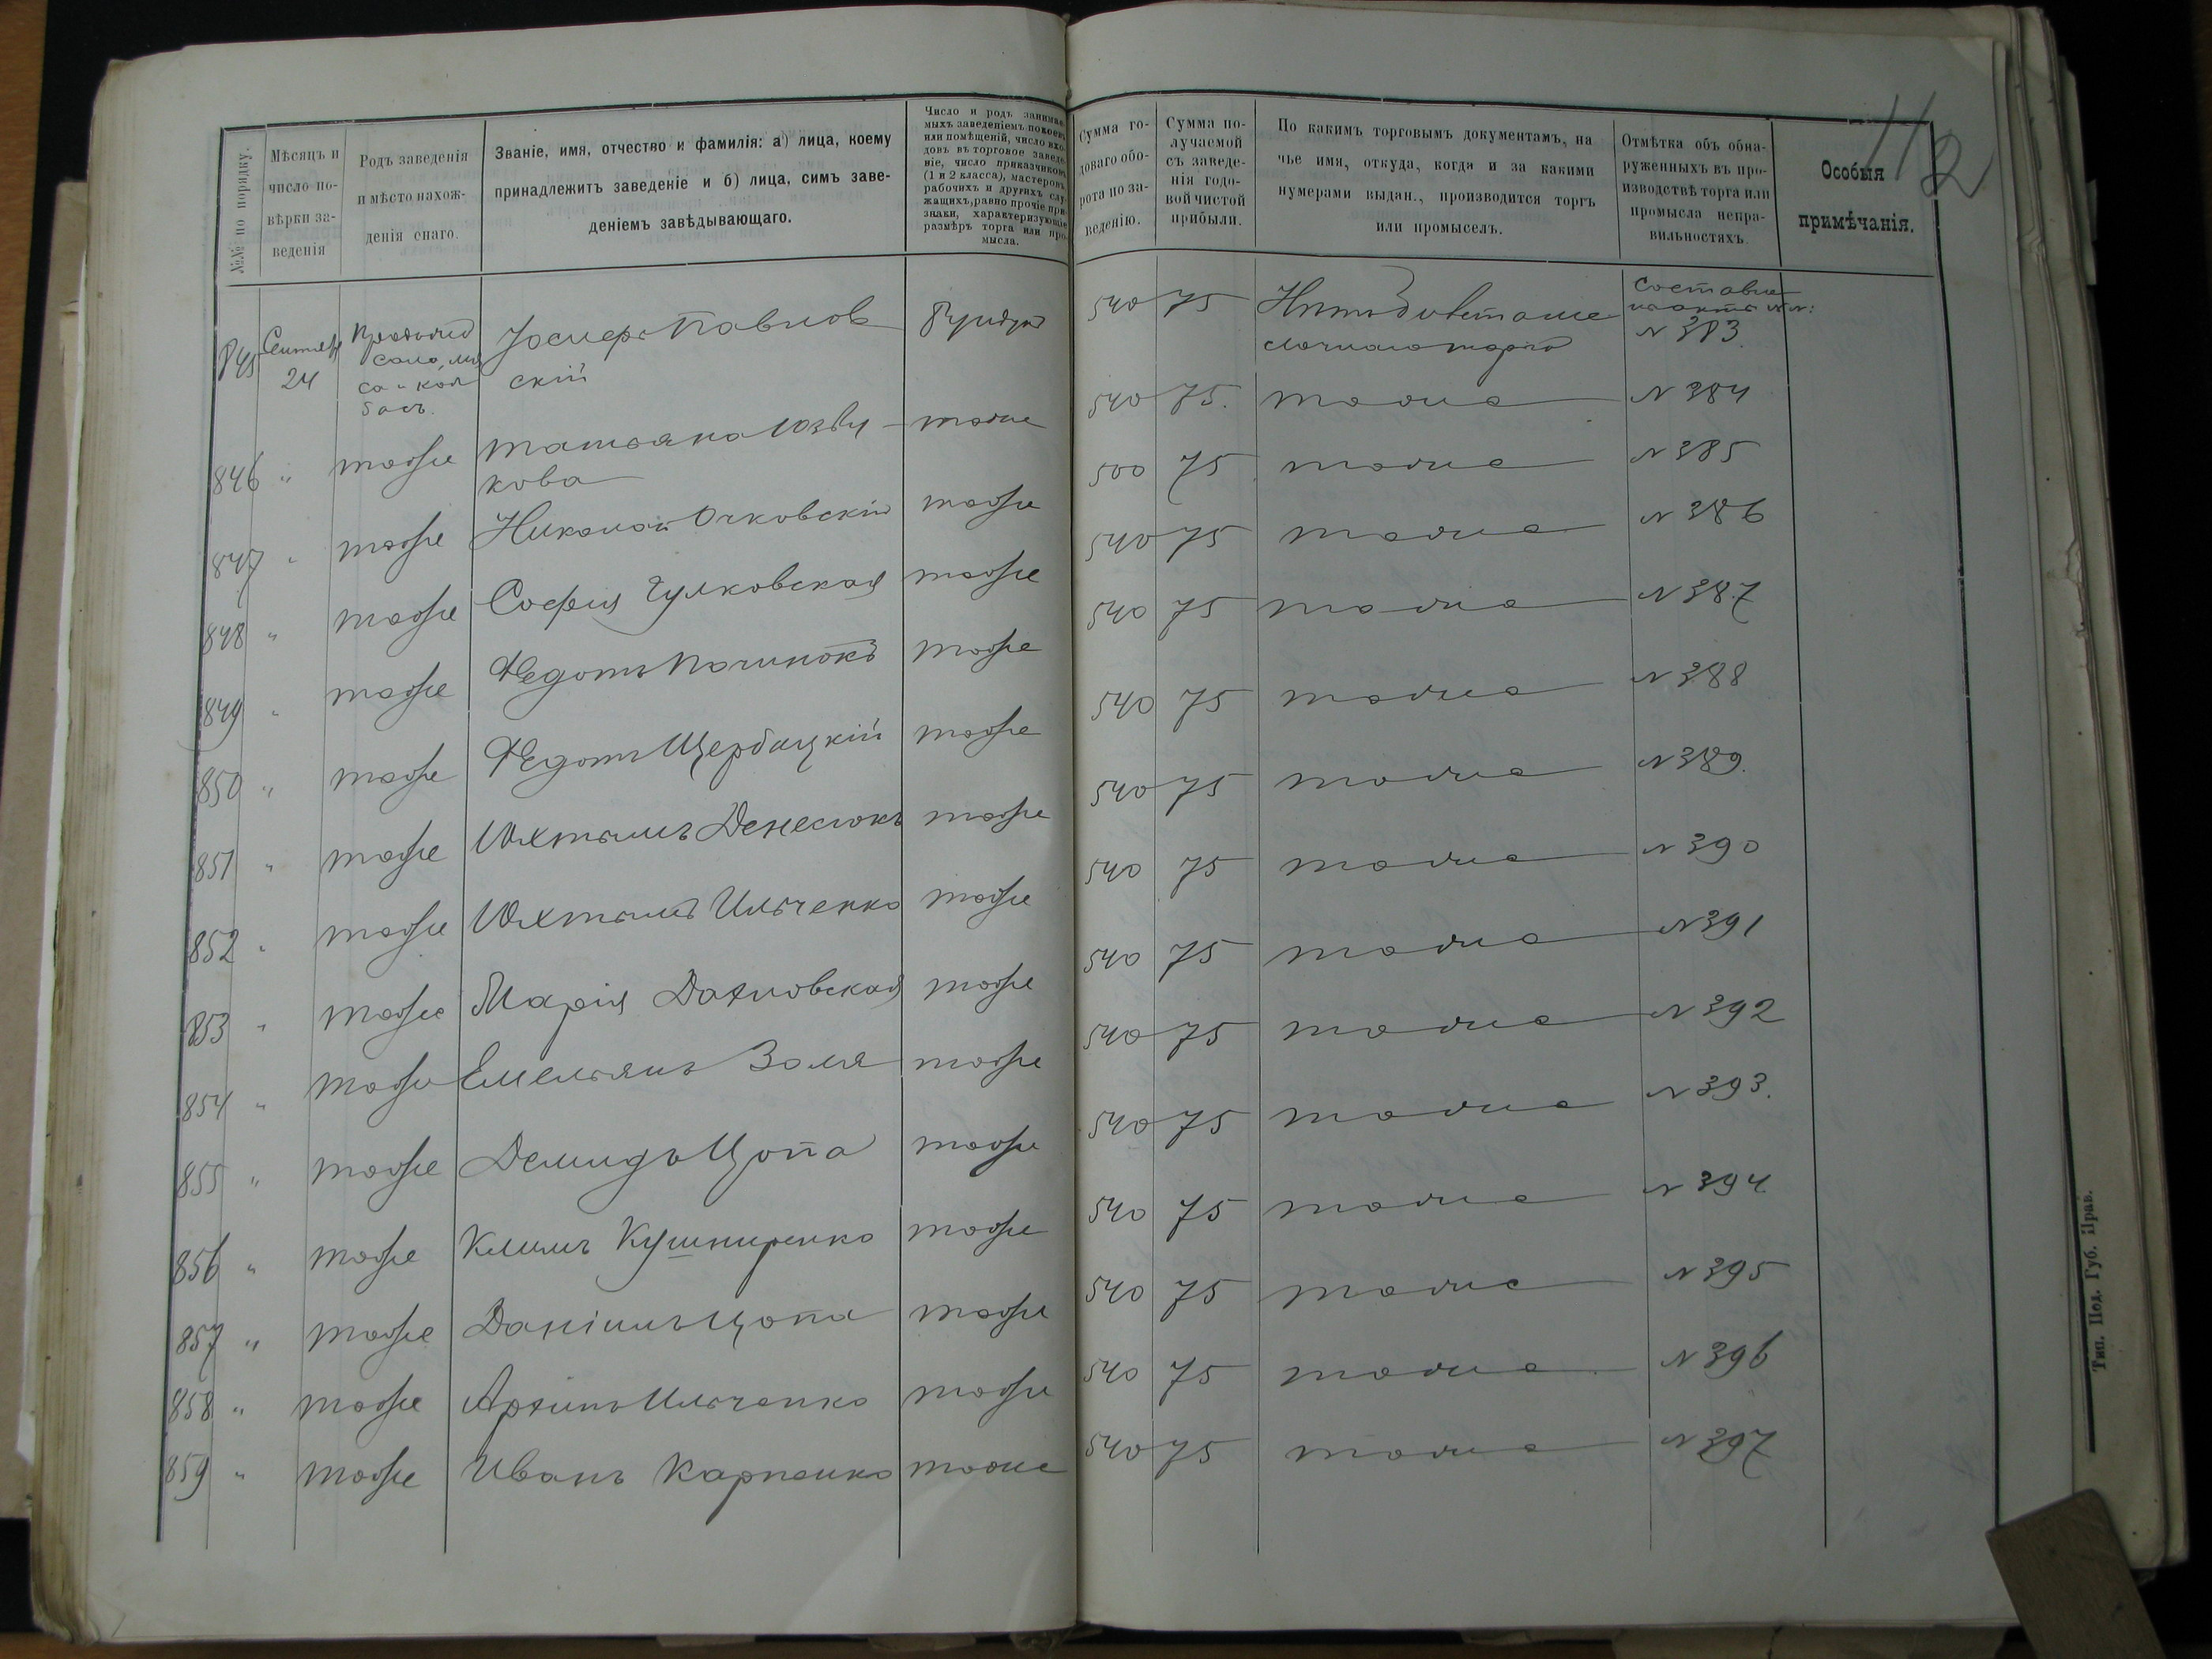 112
№№ по порядку.
Мѣсяцъ и число повѣрки заведенія
Родъ заведенія и мѣсто нахожденія онаго.
Званіе, имя, отчество и фамилія: а) лица, коему принадлежитъ заведеніе и б) лица, симъ заведеніемъ завѣдывающаго.
Число и родъ занимаемыхъ заведеніемъ покоевъ или помѣщеній, число входовъ въ торговое заведеніе, число приказчиковъ (1 и 2 класса), мастеровъ, рабочихъ и другихъ служащихъ, равно прочіе признаки, характеризующіе размѣръ торга или промысла.
Сумма годоваго оборота по заведенію.
Сумма получаемой съ заведенія годовой чистой прибыли.
По какимъ торговымъ документамъ, на чье имя, откуда, когда и за какими нумерами выдан., производится торгъ или промыселъ.
Отмѣтка объ обнаруженныхъ въ производствѣ торга или промысла неправильностяхъ.
Особыя примѣчанія.
845 Сентября 24 сало, мясо и колбасъ. Іосифъ Павловскій 540 75 N 383.
846 " тоже Татьяна Юзвикова тоже 540 75. тоже N 384
847 " тоже Николай Очковскій тоже 500 75 тоже N 385
848 " тоже София Гулковская тоже 540 75 тоже N 386
849 " тоже Федотъ Починокъ тоже 540 75 тоже N 387
850 " тоже Федотъ Щербацкій тоже 540 75 тоже N 388
851 " тоже Юхтымъ Денесюкъ тоже 540 75 тоже N 389.
852 " тоже Юхтымъ Ильченко тоже 540 75 тоже N 390
853 " тоже Марія Дахновская тоже 540 75 тоже N 391
854 " тоже Емельянъ Золя тоже 540 75 тоже N 392
855 " тоже Демидъ Цопа тоже 540 75 тоже N 393.
856 " тоже Климъ Кушниренко тоже 540 75 тоже N 394.
857 " тоже Даніилъ Цопа тоже 540 75 тоже N 395
858 " тоже Архипъ Ильченко тоже 540 75 тоже N 396
859 " тоже Иванъ Карпенко тоже 540 75 тоже N 397
Тип. Под. Губ. Прав.